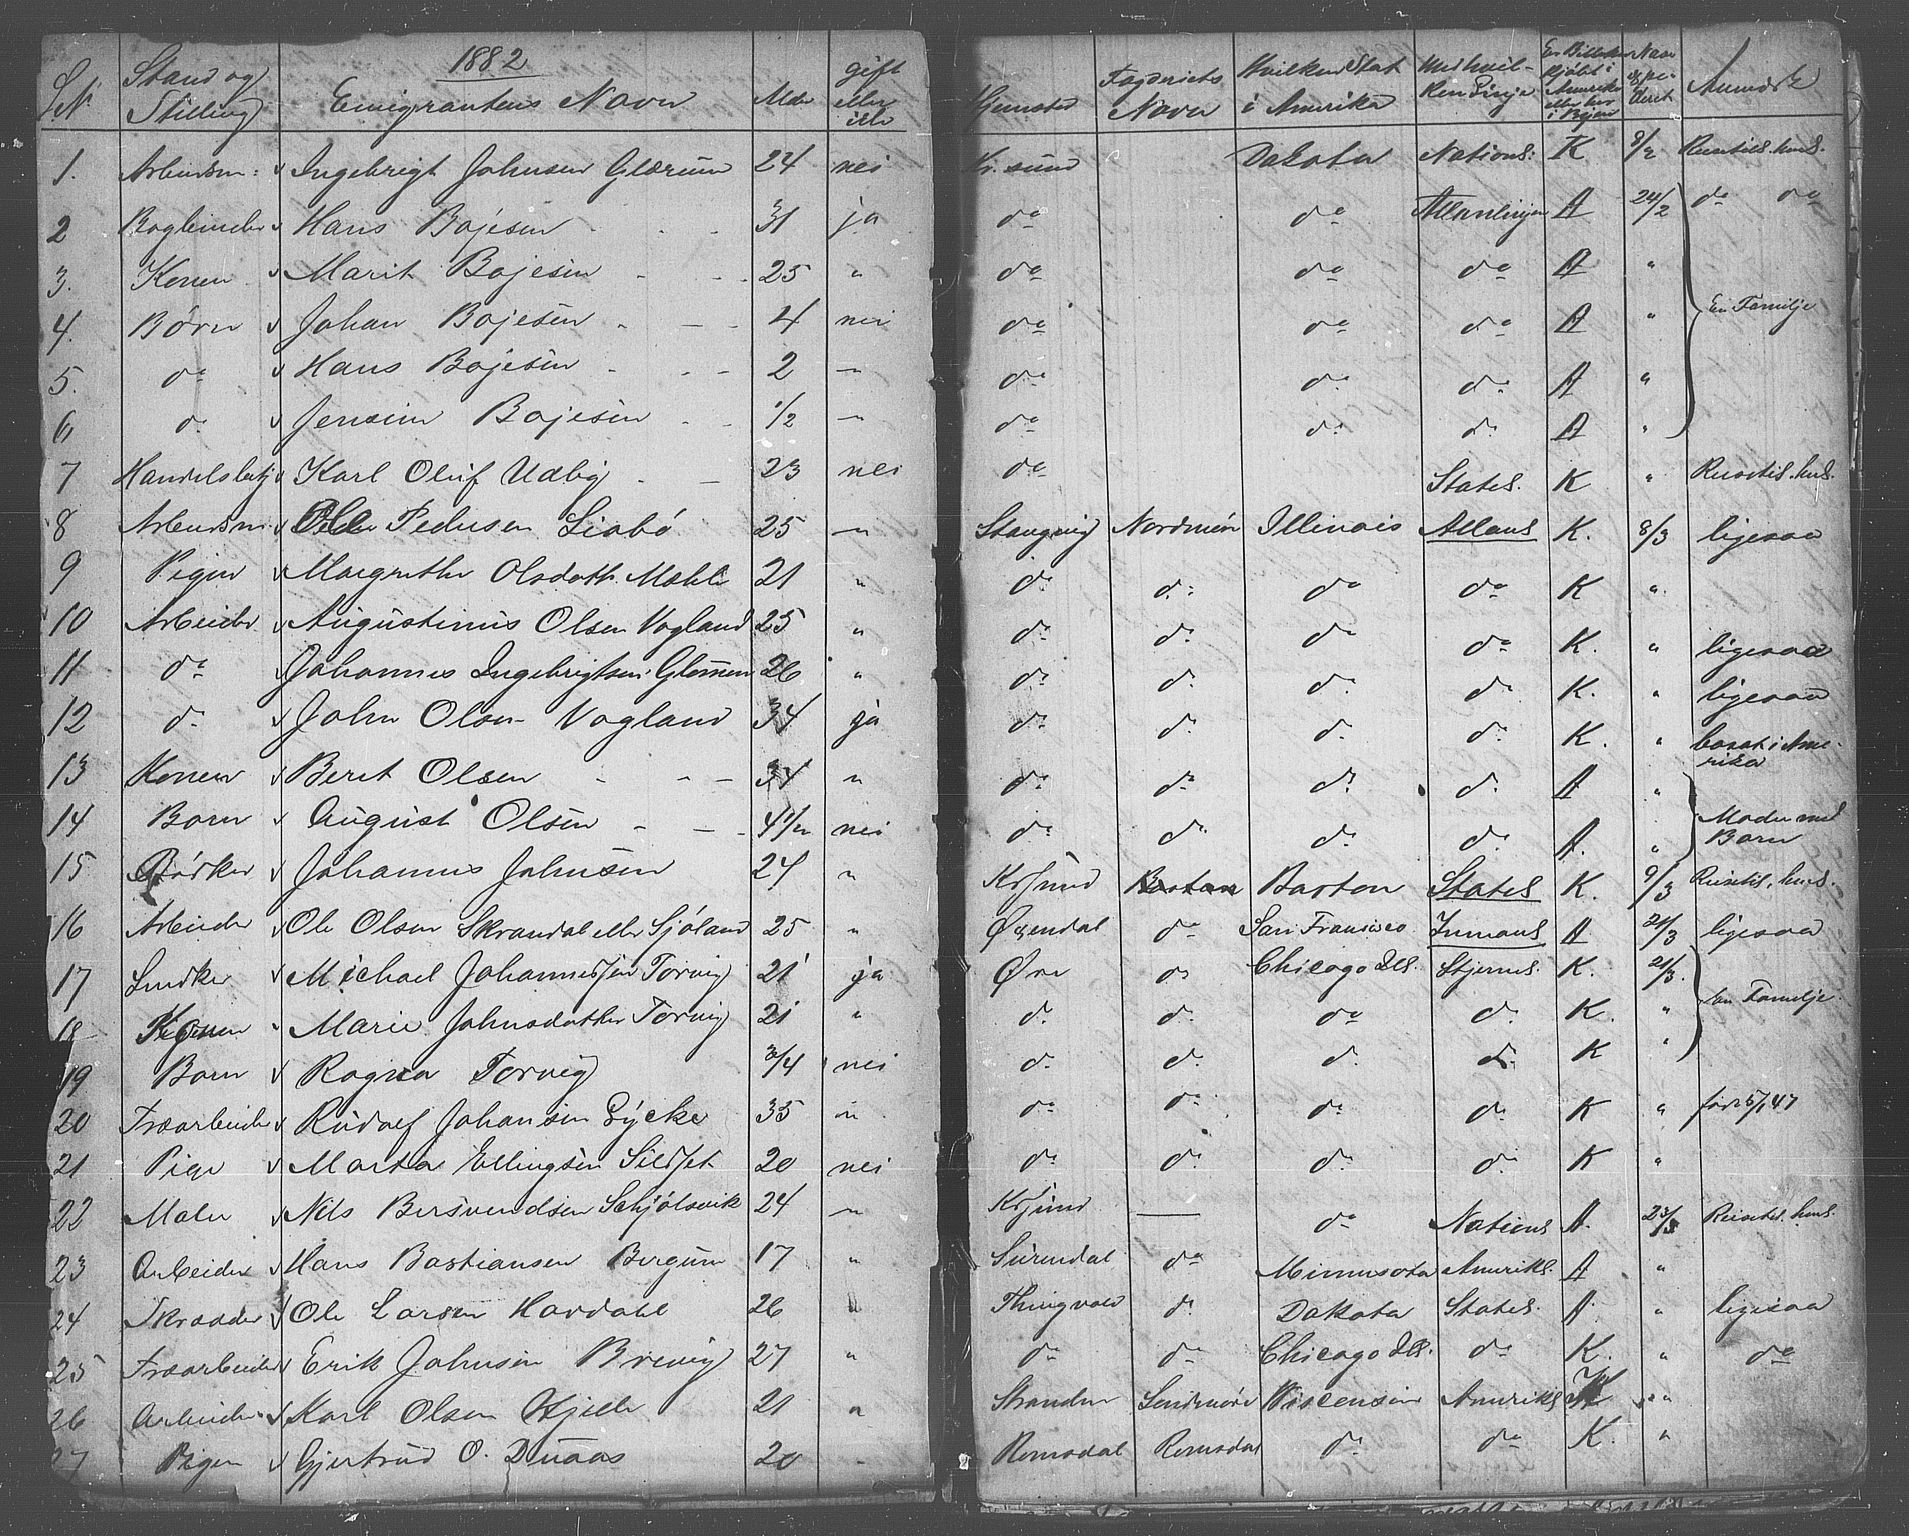 1882
LN. Stand og Stilling Emigrantens Navn Alder gift eller ikke Hjemsted Fogderiets Navn Hvilken Stat i Amerika Med hvilken Linje Er Billetten kjøbt i Amerika eller her i Byen Naar experderet Anmærk
1. Arbeidsm: Ingebrigt Johnsen Glærum 24 nei Kr. sund Dakota Nations: K 8/2 Reisetil. hers.
2 Bogbinder Hans Bojesen 31 ja do do Allanlinjen A 24/2 do do
3. Konen Marit Bojesen 25 " do do do A "
4. Børn Johan Bojesen 4 nei do do do A " En Familje
5. do Hans Bojesen 2 — do do do A "
6 do Jensine Bojesen 1/2 — do do do A "
7 Handelsbetj Karl Oluf Udbig 23 nei do States. K " Reisetil. hers.
8 Arbeidsm Ole Pedersen Siabø 25 — Stangvig Nordmøre Illinois Allans K. 8/3 ligesaa
9 Pigen Margrethe Olsdatt. Mæhle 21 " do do do do K "
10 Arbeider Augustinus Olsen Vogland 25 " do do do do K. " ligesaa
11 do Johannes Ingebrigtsen Glømmen 26 " do do do do K. " ligesaa
12 do John Olsen Vogland 34 ja do do do do K. " bosat i Amerika
13 Konen Berit Olsen 34 " do do do do A "
14 Barn August Olsen 4 1/2 nei do do do do A. " Moder med Barn
15 Bødker Johannes Johnsen 24 " Krsund Boston States K. 9/3 Reisetil. hers.
16 Arbeider Ole Olsen Skrondal eller Sjøland 25 " Øxendal do San Francisco Inmans A 21/3 ligesaa
17 Snedker Michael Johannessen Torvig 21 ja Øre do Chicago Ills. Stjernes. K. 21/3.
18 Konen Marie Johnsdatter Torvig 21 " do do do do K. " En Familje.
19 Barn Ragna Torvig 3/4 nei do do do do K "
20 Træarbeider Rudolf Johansen Lycke 35 " do do do do K " født 5/1 47
21 Pige Marta Ellingsen Sildset 20 nei do do do do K "
22 Maler Nils Bersvendsen Schjølsvik 24 — Krsund — do Nations A. 23/3 Reisetil. hers.
23 Arbeider Hans Bastiansen Bergum 17 " Surendal do Minnesota Amerikl. A "
24 Skrædder Ole Larsen Hovdahl 26 " Thingvold do Dakota States. A. " ligesaa
25 Træarbeider Erik Johnsen Brevig 27 " do do Chicago Ills. do K. " do
26 Arbeider Karl Olsen Hjelle 21 " Stranden Søndmøre Wisconsin Amerikl. "
27 Pigen Gjertrud O. Duaas 20 Romsdal Romsdal do do K. "